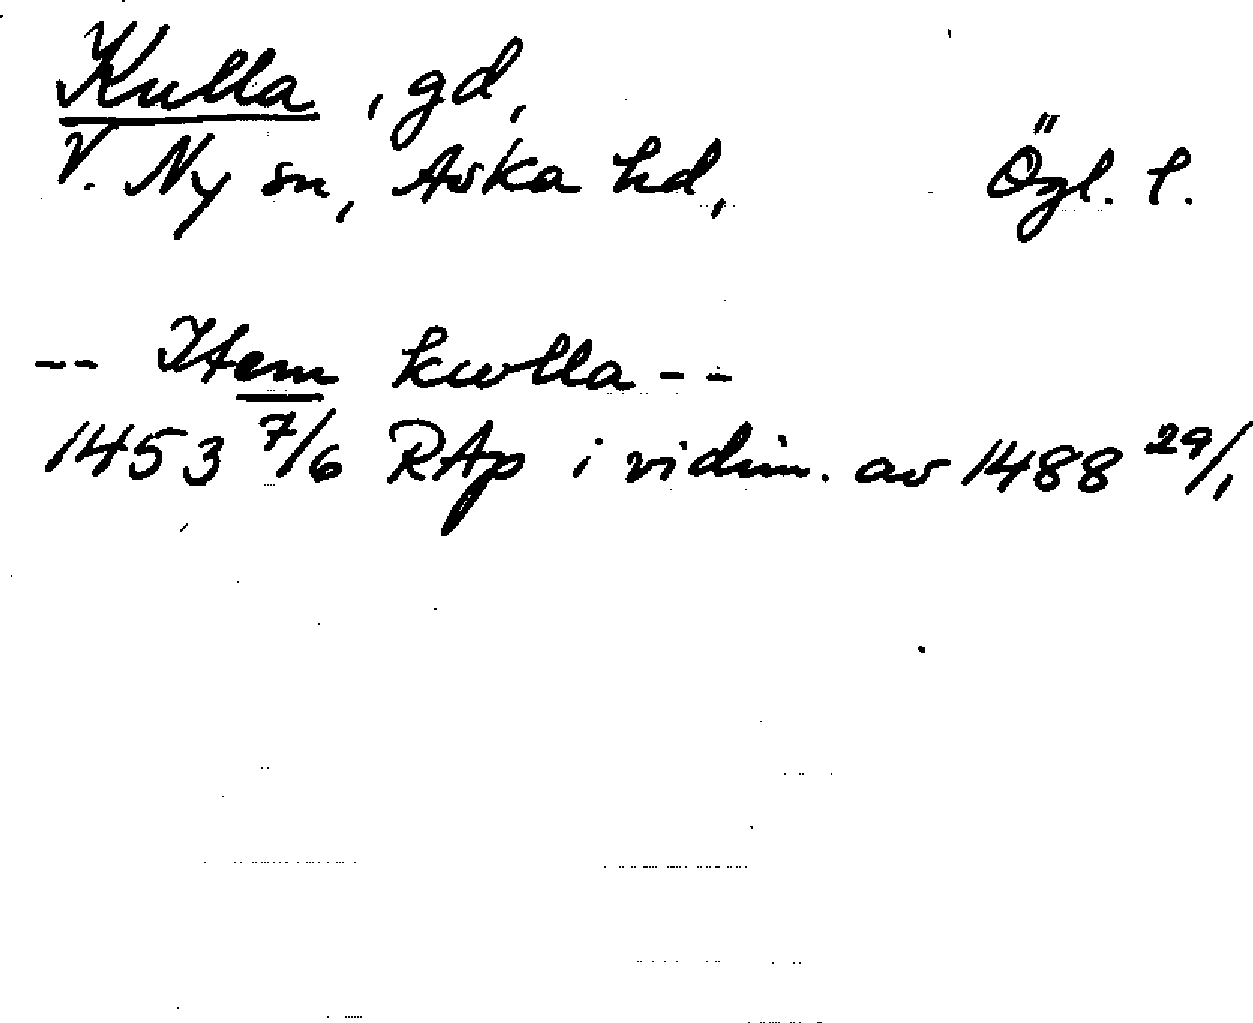 Kulla, gd,
V. Ny sn, Aska hd, Ögl. l.
-- Item kwlla --
1453 7/6 RAp i vidim. av 1488 29/1